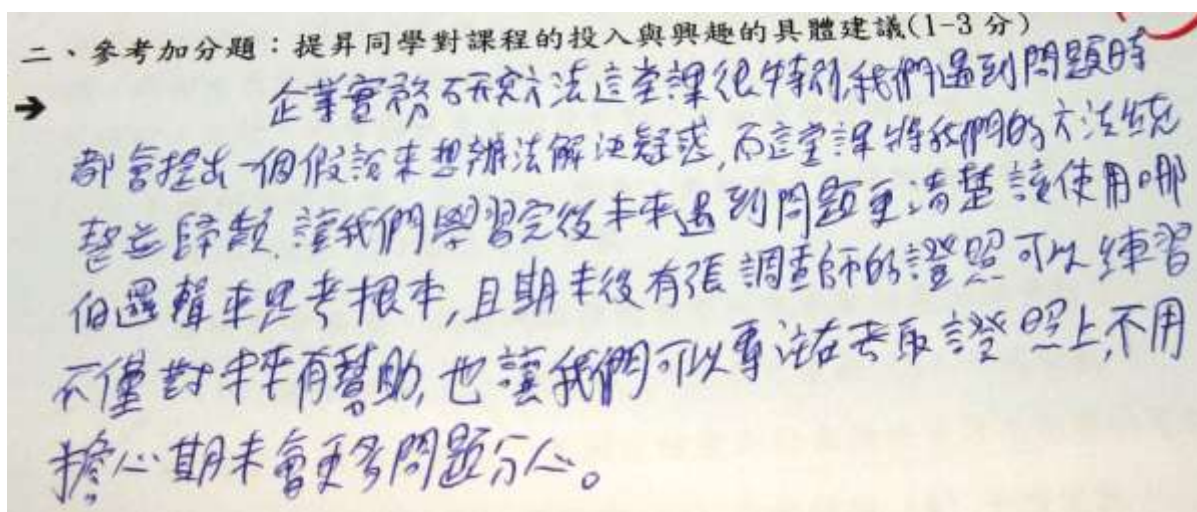 二、參考加分題：提昇同學對課程的投入與興趣的具體建議(1-3 分)
➔ 企業實務研究方法這堂課很特別,我們遇到問題時
都會提出一個假設來想辦法解決疑惑,而這堂課將我們的方法統
整並歸類,讓我們學習完後未來遇到問題更清楚該使用哪
個邏輯來思考根本,且期末後有張調查師的證照可以練習
不僅對未來有幫助,也讓我們可以專注在考取證照上,不用
擔心期末會更多問題分心。